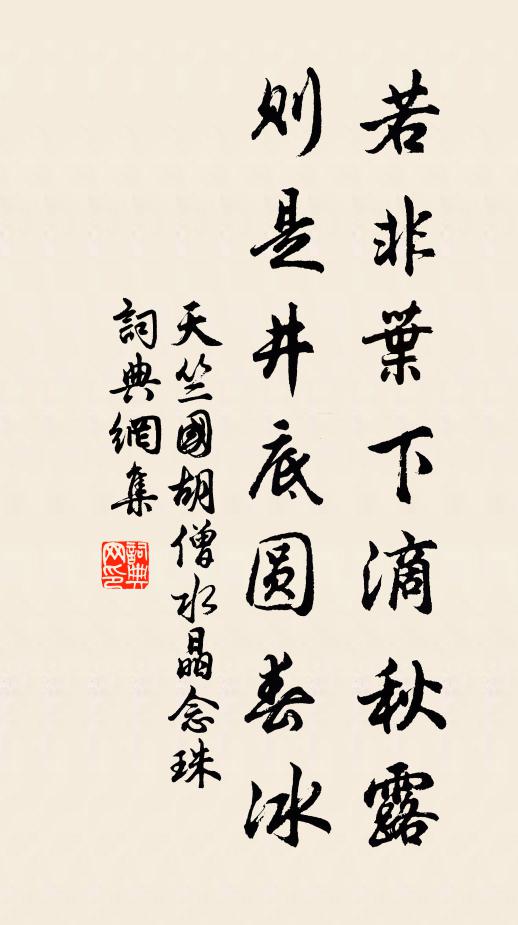 若非葉下滴秋露
則是井底圆春冰
天竺國胡僧水晶念珠
詞典網集
詞典网印